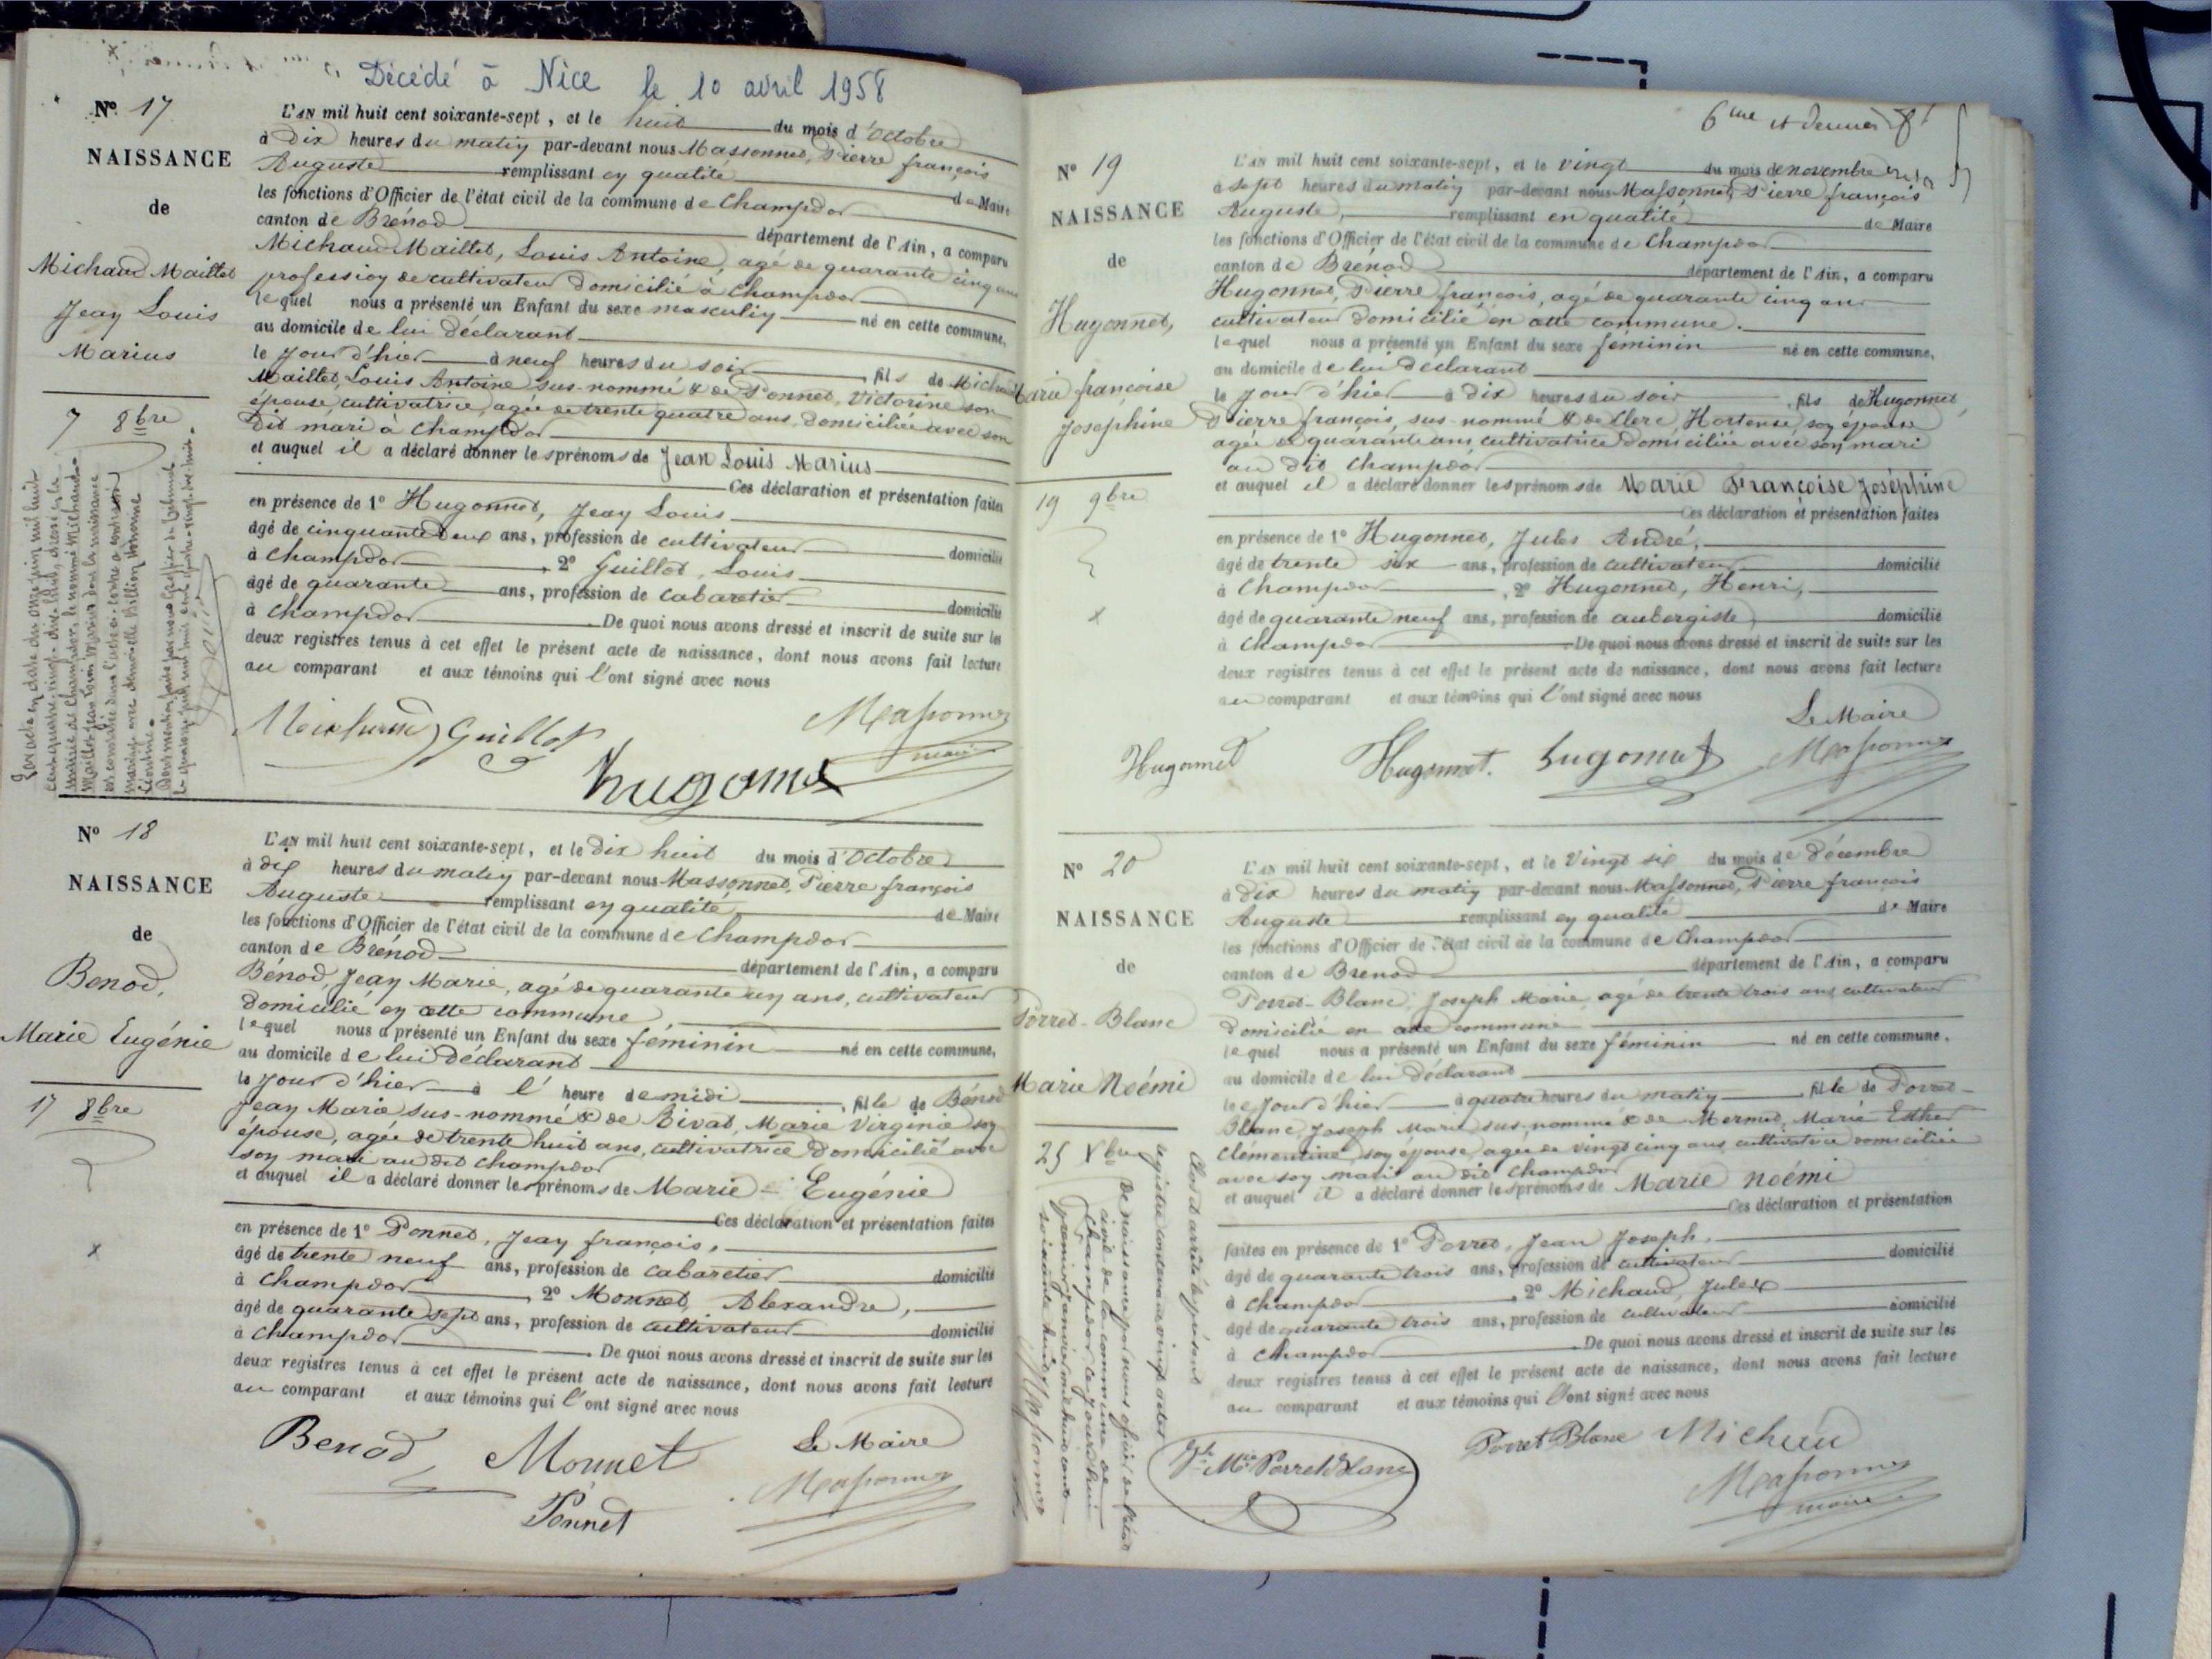 Décédé à Nice le 10 avril 1958
N° 17
NAISSANCE
de
Michaud Maillet
Jean Louis
Marius
7 8bre
L'AN mil huit cent soixante-sept, et le huit du mois d'Octobre
à Dix heures du matin par-devant nous Massonnet, Pierre françois
Auguste remplissant en qualité de Maire
les fonctions d'Officier de l'état civil de la commune de Champdor
canton de Brénod département de l'Ain, a comparu
Michaud Maillet, Louis Antoine, agé de quarante cinq ans
profession de cultivateur domicilié à Champdor
lequel nous a présenté un Enfant du sexe masculin né en cette commune,
au domicile de lui déclarant
le jour d'hier à neuf heures du soir, fils de Michaud
Maillet, Louis Antoine sus-nommé & de Ponnet, Victorine son
épouse, cultivatrice, agée de trente quatre ans, domiciliée avec son
dit mari à Champdor
et auquel il a déclaré donner les prénoms de Jean Louis Marius
Ces déclaration et présentation faites
en présence de 1° Hugonnet, Jean Louis
âgé de cinquante deux ans, profession de cultivateur domicilié
à Champdor, 2° Guillot, Louis
âgé de quarante ans, profession de cabaretier domicilié
à Champdor De quoi nous avons dressé et inscrit de suite sur les
deux registres tenus à cet effet le présent acte de naissance, dont nous avons fait lecture
au comparant et aux témoins qui l'ont signé avec nous
Michaud Guillot Massonnet
maire
hugonnet
N° 18
NAISSANCE
de
Benod,
Marie Eugénie
17 8bre
L'AN mil huit cent soixante-sept, et le Dix huit du mois d'Octobre
à dix heures du matin par-devant nous Massonnet, Pierre françois
Auguste remplissant en qualité de Maire
les fonctions d'Officier de l'état civil de la commune de Champdor
canton de Brénod département de l'Ain, a comparu
Bénod, Jean Marie, agé de quarante un ans, cultivateur
domicilié en cette commune
lequel nous a présenté un Enfant du sexe féminin né en cette commune,
au domicile de lui déclarant
le jour d'hier à l'heure de midi, fille de Bénod
Jean Marie sus-nommé & de Bivat, Marie Virginie son
épouse, agée de trente huit ans, cultivatrice domicilié avec
son mari au dit Champdor
et auquel il a déclaré donner les prénoms de Marie-Eugénie
Ces déclaration et présentation faites
en présence de 1° Ponnet, Jean françois,
âgé de trente neuf ans, profession de cabaretier domicilié
à Champdor, 2° Monnet, Alexandre,
âgé de quarante sept ans, profession de cultivateur domicilié
à Champdor De quoi nous avons dressé et inscrit de suite sur les
deux registres tenus à cet effet le présent acte de naissance, dont nous avons fait lecture
au comparant et aux témoins qui l'ont signé avec nous
Benod Monnet Le Maire
Ponnet Massonnet
6me et dernier
N° 19
NAISSANCE
de
Hugonnet,
Marie françoise
Josephine
19 9bre
L'AN mil huit cent soixante-sept, et le vingt du mois de novembre
à sept heures du matin par-devant nous Massonnet, Pierre françois
Auguste, remplissant en qualité de Maire
les fonctions d'Officier de l'état civil de la commune de Champdor
canton de Brénod département de l'Ain, a comparu
Hugonnet, Pierre françois, agé de quarante cinq ans
cultivateur domicilié en cette commune.
lequel nous a présenté un Enfant du sexe féminin né en cette commune,
au domicile de lui déclarant
le jour d'hier à dix heures du soir, fils de Hugonnet,
Pierre françois, sus-nommé & de Clerc Hortense, son épouse
agée de quarante ans, cultivatrice domiciliée avec son mari
au dit Champdor
et auquel il a déclaré donner les prénoms de Marie Françoise Joséphine
Ces déclaration et présentation faites
en présence de 1° Hugonnet, Jules André,
âgé de trente six ans, profession de cultivateur domicilié
à Champdor, 2° Hugonnet, Henri,
âgé de quarante neuf ans, profession de aubergiste domicilié
à Champdor De quoi nous avons dressé et inscrit de suite sur les
deux registres tenus à cet effet le présent acte de naissance, dont nous avons fait lecture
au comparant et aux témoins qui l'ont signé avec nous
Le Maire
Hugonnet Hugonnet. hugonnet Massonnet
N° 20
NAISSANCE
de
Porret-Blanc
Marie Noémi
25 Xbre
L'AN mil huit cent soixante-sept, et le Vingt six du mois de décembre
à Dix heures du matin par-devant nous Massonnet, Pierre françois
Auguste remplissant en qualité de Maire
les fonctions d'Officier de l'état civil de la commune de Champdor
canton de Brenod département de l'Ain, a comparu
Porret-Blanc, Joseph Marie, agé de trente trois ans cultivateur
domicilié en cette commune
lequel nous a présenté un Enfant du sexe féminin né en cette commune,
au domicile de lui déclarant
le jour d'hier à quatre heures du matin, fille de Porret-
Blanc, Joseph Marie sus-nommé & de Mermet, Marie Esther
Clémentine, son épouse, agée de vingt cinq ans, cultivatrice domiciliée
avec son mari au dit Champdor
et auquel il a déclaré donner les prénoms de Marie noémi
Ces déclaration et présentation
faites en présence de 1° Porret, Jean Joseph,
âgé de quarante trois ans, profession de cultivateur domicilié
à Champdor, 2° Michaud, Jules
âgé de quarante trois ans, profession de cultivateur domicilié
à Champdor De quoi nous avons dressé et inscrit de suite sur les
deux registres tenus à cet effet le présent acte de naissance, dont nous avons fait lecture
au comparant et aux témoins qui l'ont signé avec nous
Porret Blanc Michaud
Massonnet
maire
Clos et arrêté le présent
registre contenant vingt actes
de naissance par nous officier de l'état
civil de la commune de
Champdor ce jourd'hui
premier janvier mil huit cent
soixante huit
Massonnet